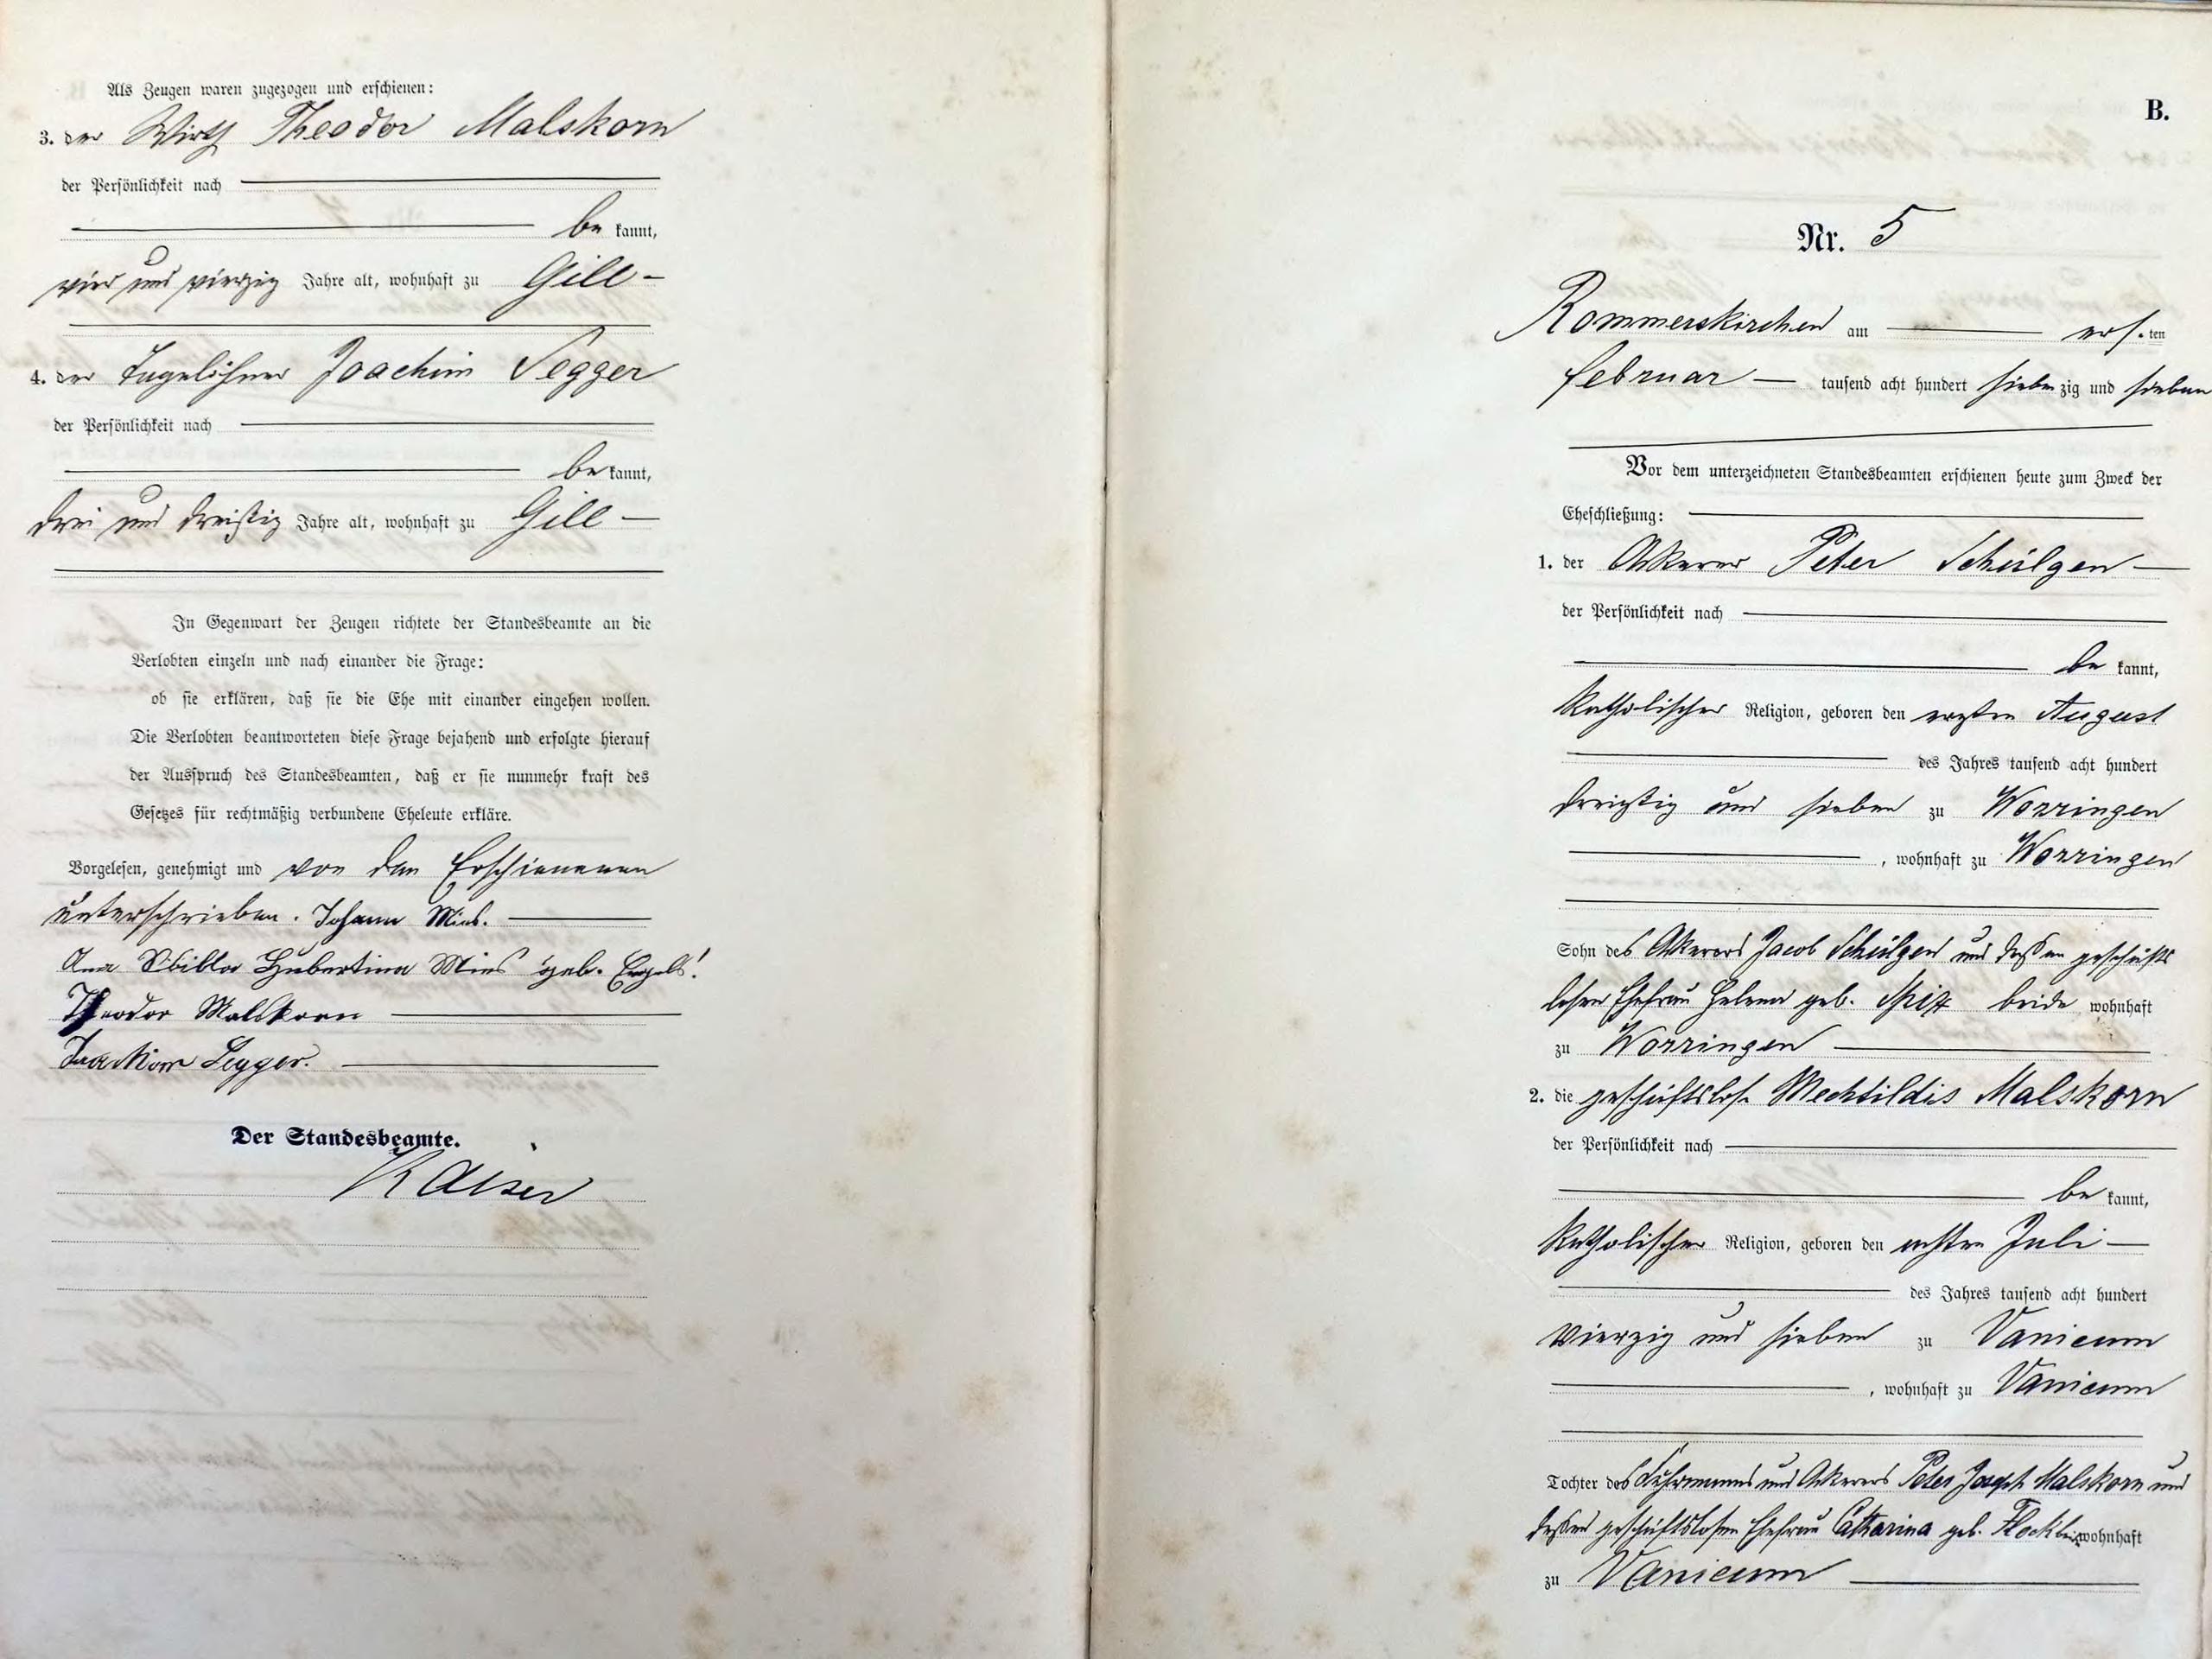 Als Zeugen waren zugezogen und erschienen:
3. der Wirth Theodor Malskorn
der Persönlichkeit nach
be kannt,
vier und vierzig Jahre alt, wohnhaft zu Gill –
4. der Tagelöhner Joachim Segger
der Persönlichkeit nach
be kannt,
drei und dreißig Jahre alt, wohnhaft zu Gill –
In Gegenwart der Zeugen richtete der Standesbeamte an die
Verlobten einzeln und nach einander die Frage:
ob sie erklären, daß sie die Ehe mit einander eingehen wollen.
Die Verlobten beantworteten diese Frage bejahend und erfolgte hierauf
der Ausspruch des Standesbeamten, daß er sie nunmehr kraft des
Gesetzes für rechtmäßig verbundene Eheleute erkläre.
Vorgelesen, genehmigt und von den Erschienenen
unterschrieben. Johann Mies.
Anna Sibilla Hubertina Mies geb. Engels!
Theodor Malskorn
Joachim Segger.
Der Standesbeamte.
Kaiser
B.
Nr. 5
Rommerskirchen am ersten
Februar – tausend acht hundert siebenzig und sieben
Vor dem unterzeichneten Standesbeamten erschienen heute zum Zweck der
Eheschließung:
1. der Ackerer Peter Schülgen –
der Persönlichkeit nach
be kannt,
katholischer Religion, geboren den August
des Jahres tausend acht hundert
dreißig und sieben zu Worringen
, wohnhaft zu Worringen
Sohn des Ackerers Jacob Schülgen und dessen geschäfts
losen Ehefrau Helena geb. beide wohnhaft
zu Worringen
2. die geschäftslose Mechtildis Malskorn
der Persönlichkeit nach
be kannt,
katholischer Religion, geboren den achten Juli –
des Jahres tausend acht hundert
vierzig und sieben zu Vanicum
, wohnhaft zu Vanicum
Tochter des Fuhrmanns und Ackerers Peter Joseph Malskorn und
dessen geschäftslosen Ehefrau Catharina geb. Flock wohnhaft
zu Vanicum